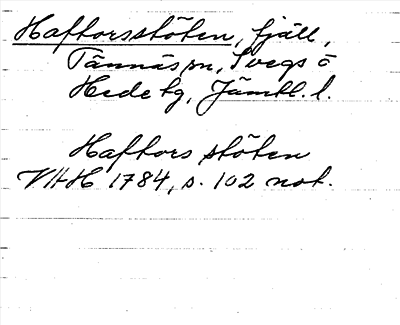 Haftorsstöten, fjäll,
Tännäs sn, Svegs o
Hede tg, Jämtl. l.
Haftors stöten
VHH 1784, s. 102 not.